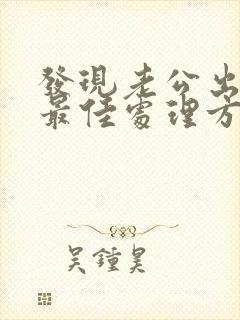 發現老公出
最佳處理方
吳鍾昊